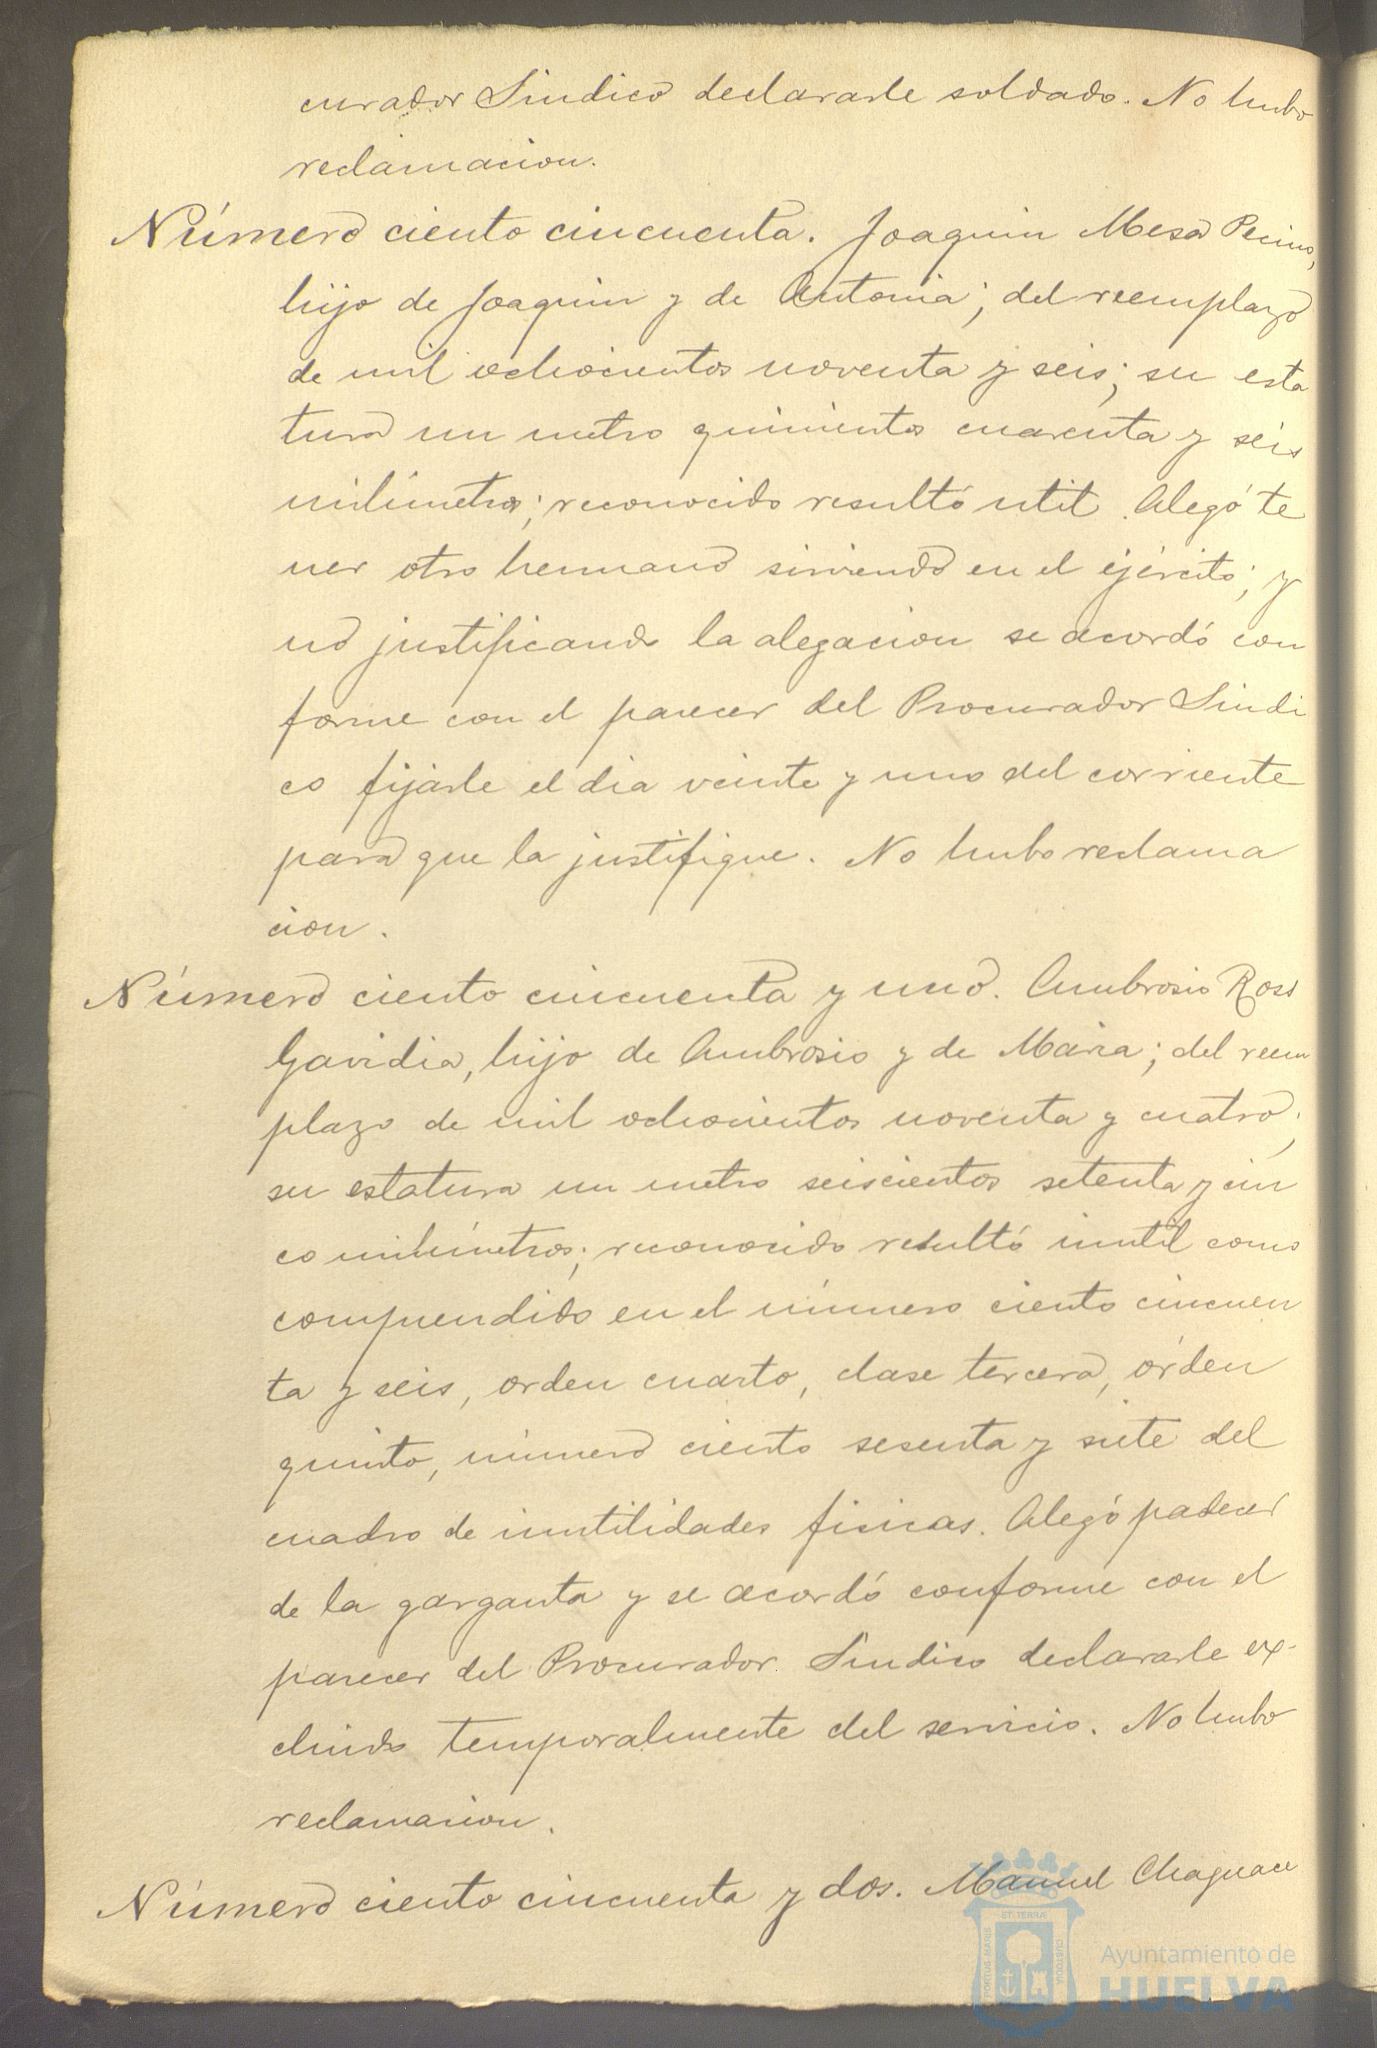 curador Sindico declararle soldado. No hubo
reclamacion.
Número ciento cincuenta. Joaquin Mesa Pecino,
hijo de Joaquin y de Antonia; del reemplazo
de mil ochocientos noventa y seis; su esta
tura un metro quinientos cuarenta y seis
milimetros; reconocido resultó util. Alegó te
ner otro hermano sirviendo en el ejército; y
no justificando la alegacion se acordó con
forme con el parecer del Procurador Sindi
co fijarle el dia veinte y uno del corriente
para que la justifique. No hubo reclama
cion.
Número ciento cincuenta y uno. Ambrosio Ross
Gavidia, hijo de Ambrosio y de Maria; del reem
plazo de mil ochocientos noventa y cuatro;
su estatura un metro seiscientos setenta y cin
co milímetros; reconocido resultó inutil como
comprendido en el número ciento cincuen
ta y seis, orden cuarto, clase tercera, órden
quinto, número ciento sesenta y siete del
cuadro de inutilidades fisicas. Alegó padecer
de la garganta y se acordó conforme con el
parecer del Procurador Sindico declararle ex-
cluido temporalmente del servicio. No hubo
reclamacion.
Número ciento cincuenta y dos. Manuel Chaguace
PORTUS MARIS
ET TERRAE
CUSTODIA
Ayuntamiento de
HUELVA